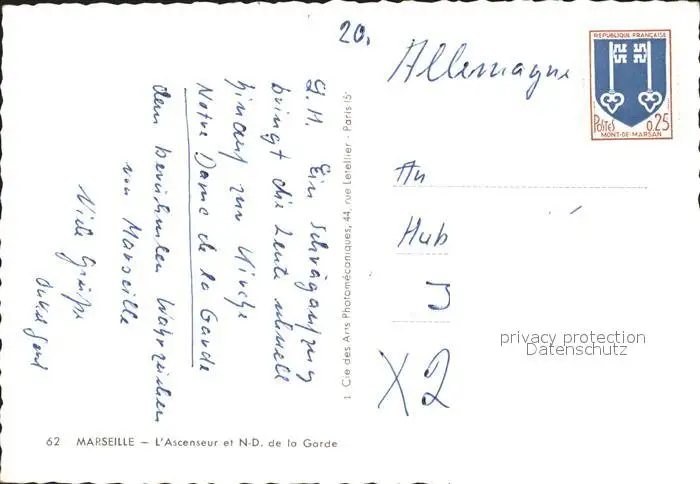 20.
Allemagne
REPUBLIQUE FRANÇAISE
POSTES 0.25
MONT-DE-MARSAN
G.H. Ein Schrägaufzug
bringt die Leute schnell
hinauf zur Kirche
Notre Dame de la Garde
dem berühmten Wahrzeichen
von Marseille
Viele Grüße
Onkel
1. Cie des Arts Photomécaniques, 44, rue Letellier - Paris 15
An
Hub
X2
privacy protection
Datenschutz
62 MARSEILLE – L'Ascenseur et N-D. de la Garde